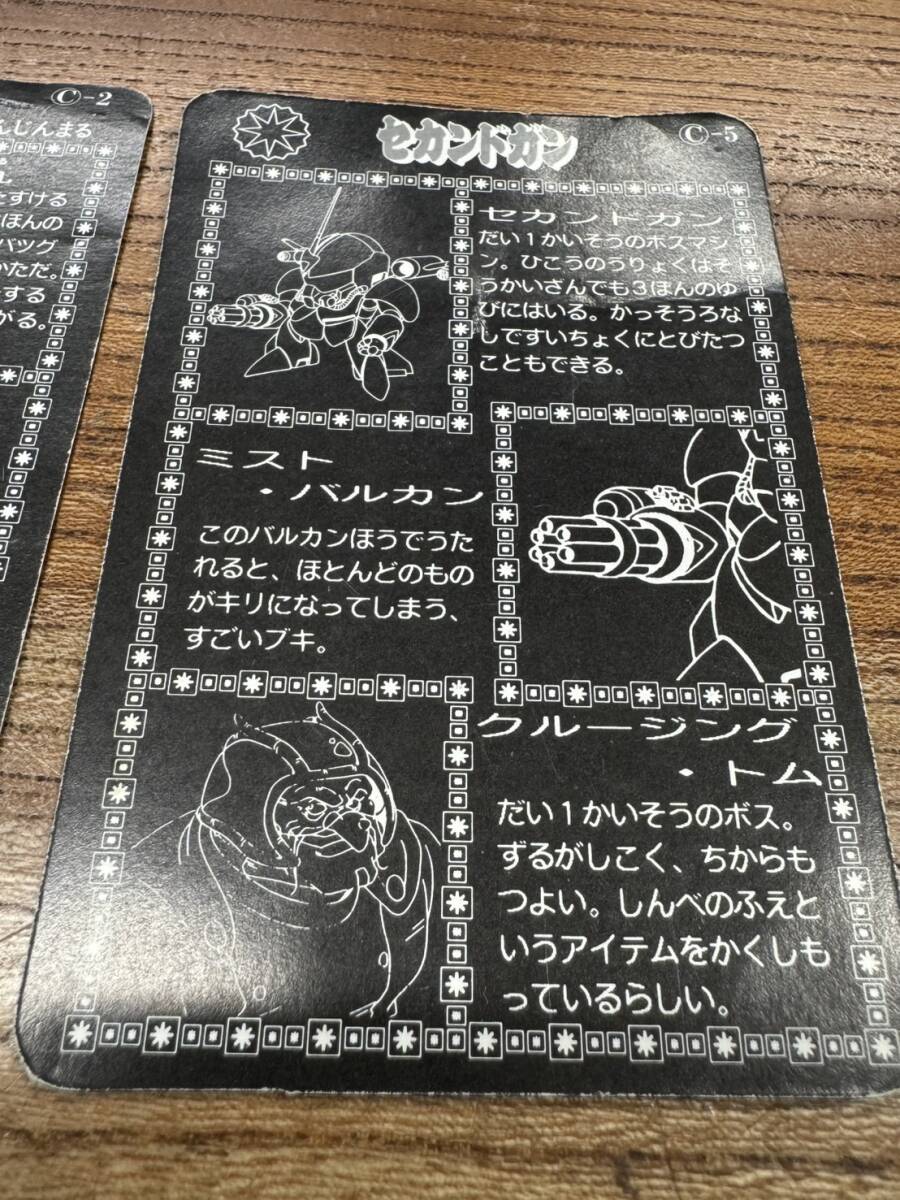 C-2
んじんまる
たすける
ほんの
バツグ
かただ。
する
がる。
セカンドガン
C-5
セカンドガン
だい1かいそうのボスマシ
ン。ひこうのうりょくはそ
うかいさんでも3ほんのゆ
びにはいる。かっそうろな
しですいちょくにとびたつ
こともできる。
ミスト
・バルカン
このバルカンほうでうた
れると、ほとんどのもの
がキリになってしまう、
すごいブキ。
クルージング
・トム
だい1かいそうのボス。
ずるがしこく、ちからも
つよい。しんべのふえと
いうアイテムをかくしも
っているらしい。